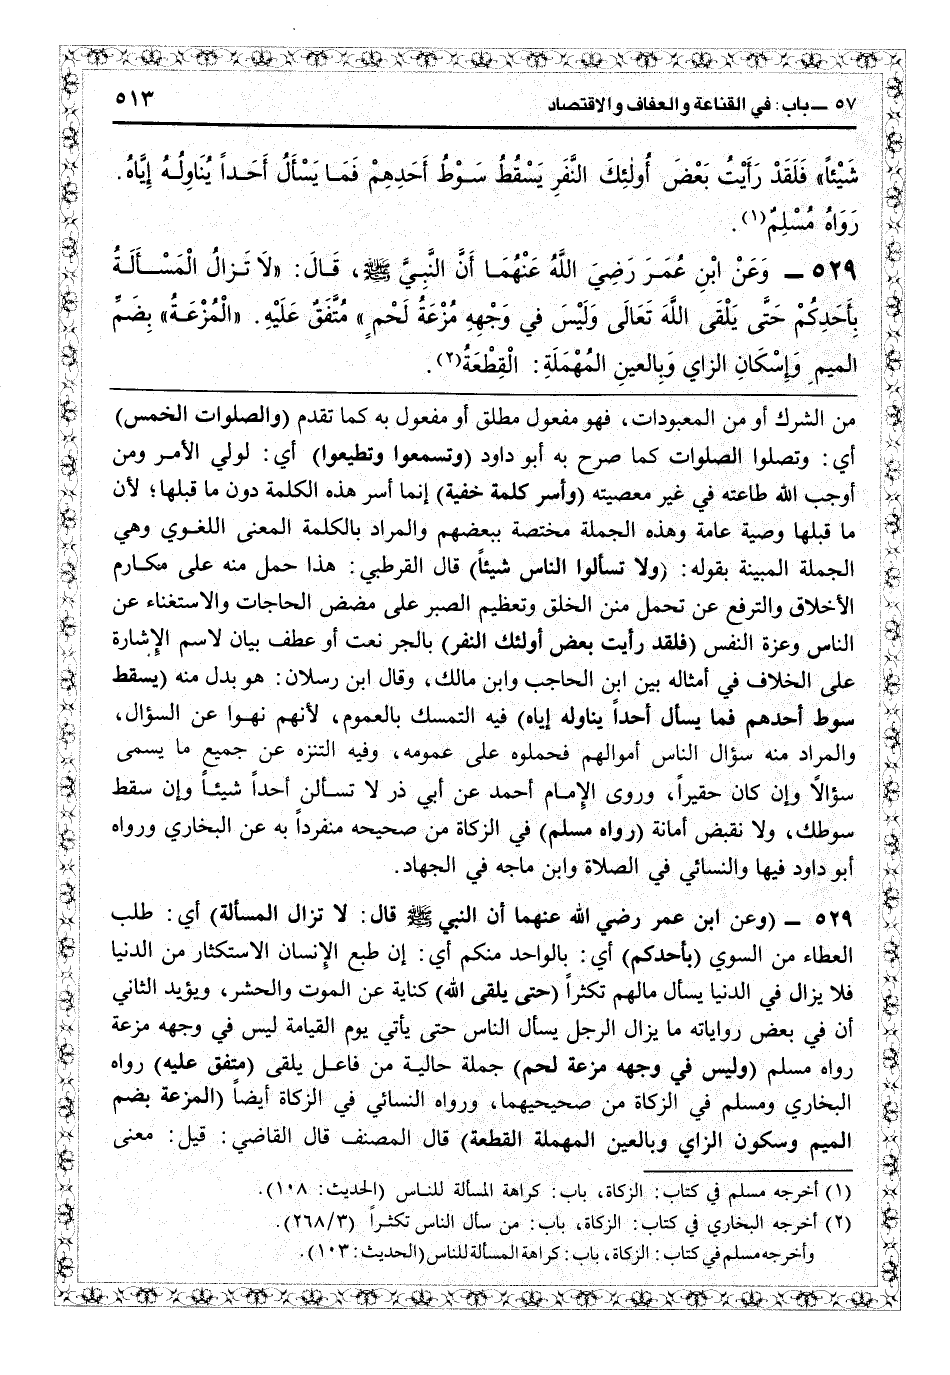 ٥٧ ـ باب: في القناعة والعفاف والاقتصاد ٥١٣
شَيْئاً» فَلَقَدْ رَأَيْتُ بَعْضَ أُولٰئِكَ النَّفَرِ يَسْقُطُ سَوْطُ أَحَدِهِمْ فَمَا يَسْأَلُ أَحَداً يُنَاوِلُهُ إِيَّاهُ.
رَوَاهُ مُسْلِمٌ(١).
٥٢٩ ـ وَعَنْ ابْنِ عُمَرَ رَضِيَ اللَّهُ عَنْهُمَا أَنَّ النَّبِيَّ ﷺ، قَالَ: «لاَ تَزالُ الْمَسْأَلَةُ
بِأَحَدِكُمْ حَتَّى يَلْقَى اللَّهَ تَعَالَى وَلَيْسَ في وَجْهِهِ مُزْعَةُ لَحْمٍ» مُتَّفَقٌ عَلَيْهِ. «الْمُزْعَةُ» بِضَمِّ
الميمِ وَإِسْكَانِ الزاي وَبِالعينِ المُهْمَلَةِ: الْقِطْعَةُ(٢).
من الشرك أو من المعبودات، فهو مفعول مطلق أو مفعول به كما تقدم (والصلوات الخمس)
أي: وتصلوا الصلوات كما صرح به أبو داود (وتسمعوا وتطيعوا) أي: لولي الأمر ومن
أوجب الله طاعته في غير معصيته (وأسر كلمة خفية) إنما أسر هذه الكلمة دون ما قبلها؛ لأن
ما قبلها وصية عامة وهذه الجملة مختصة ببعضهم والمراد بالكلمة المعنى اللغوي وهي
الجملة المبينة بقوله: (ولا تسألوا الناس شيئاً) قال القرطبي: هذا حمل منه على مكارم
الأخلاق والترفع عن تحمل منن الخلق وتعظيم الصبر على مضض الحاجات والاستغناء عن
الناس وعزة النفس (فلقد رأيت بعض أولئك النفر) بالجر نعت أو عطف بيان لاسم الإشارة
على الخلاف في أمثاله بين ابن الحاجب وابن مالك، وقال ابن رسلان: هو بدل منه (يسقط
سوط أحدهم فما يسأل أحداً يناوله إياه) فيه التمسك بالعموم، لأنهم نهوا عن السؤال،
والمراد منه سؤال الناس أموالهم فحملوه على عمومه، وفيه التنزه عن جميع ما يسمى
سؤالاً وإن كان حقيراً، وروى الإمام أحمد عن أبي ذر لا تسألن أحداً شيئاً وإن سقط
سوطك، ولا نقبض أمانة (رواه مسلم) في الزكاة من صحيحه منفرداً به عن البخاري ورواه
أبو داود فيها والنسائي في الصلاة وابن ماجه في الجهاد.
٥٢٩ ـ (وعن ابن عمر رضي الله عنهما أن النبي ﷺ قال: لا تزال المسألة) أي: طلب
العطاء من السوي (بأحدكم) أي: بالواحد منكم أي: إن طبع الإنسان الاستكثار من الدنيا
فلا يزال في الدنيا يسأل مالهم تكثراً (حتى يلقى الله) كناية عن الموت والحشر، ويؤيد الثاني
أن في بعض رواياته ما يزال الرجل يسأل الناس حتى يأتي يوم القيامة ليس في وجهه مزعة
رواه مسلم (وليس في وجهه مزعة لحم) جملة حالية من فاعل يلقى (متفق عليه) رواه
البخاري ومسلم في الزكاة من صحيحيهما، ورواه النسائي في الزكاة أيضاً (المزعة بضم
الميم وسكون الزاي وبالعين المهملة القطعة) قال المصنف قال القاضي: قيل: معنى
(١) أخرجه مسلم في كتاب: الزكاة، باب: كراهة المسألة للناس (الحديث: ١٠٨).
(٢) أخرجه البخاري في كتاب: الزكاة، باب: من سأل الناس تكثراً (٢٦٨/٣).
وأخرجه مسلم في كتاب: الزكاة، باب: كراهة المسألة للناس (الحديث: ١٠٣).